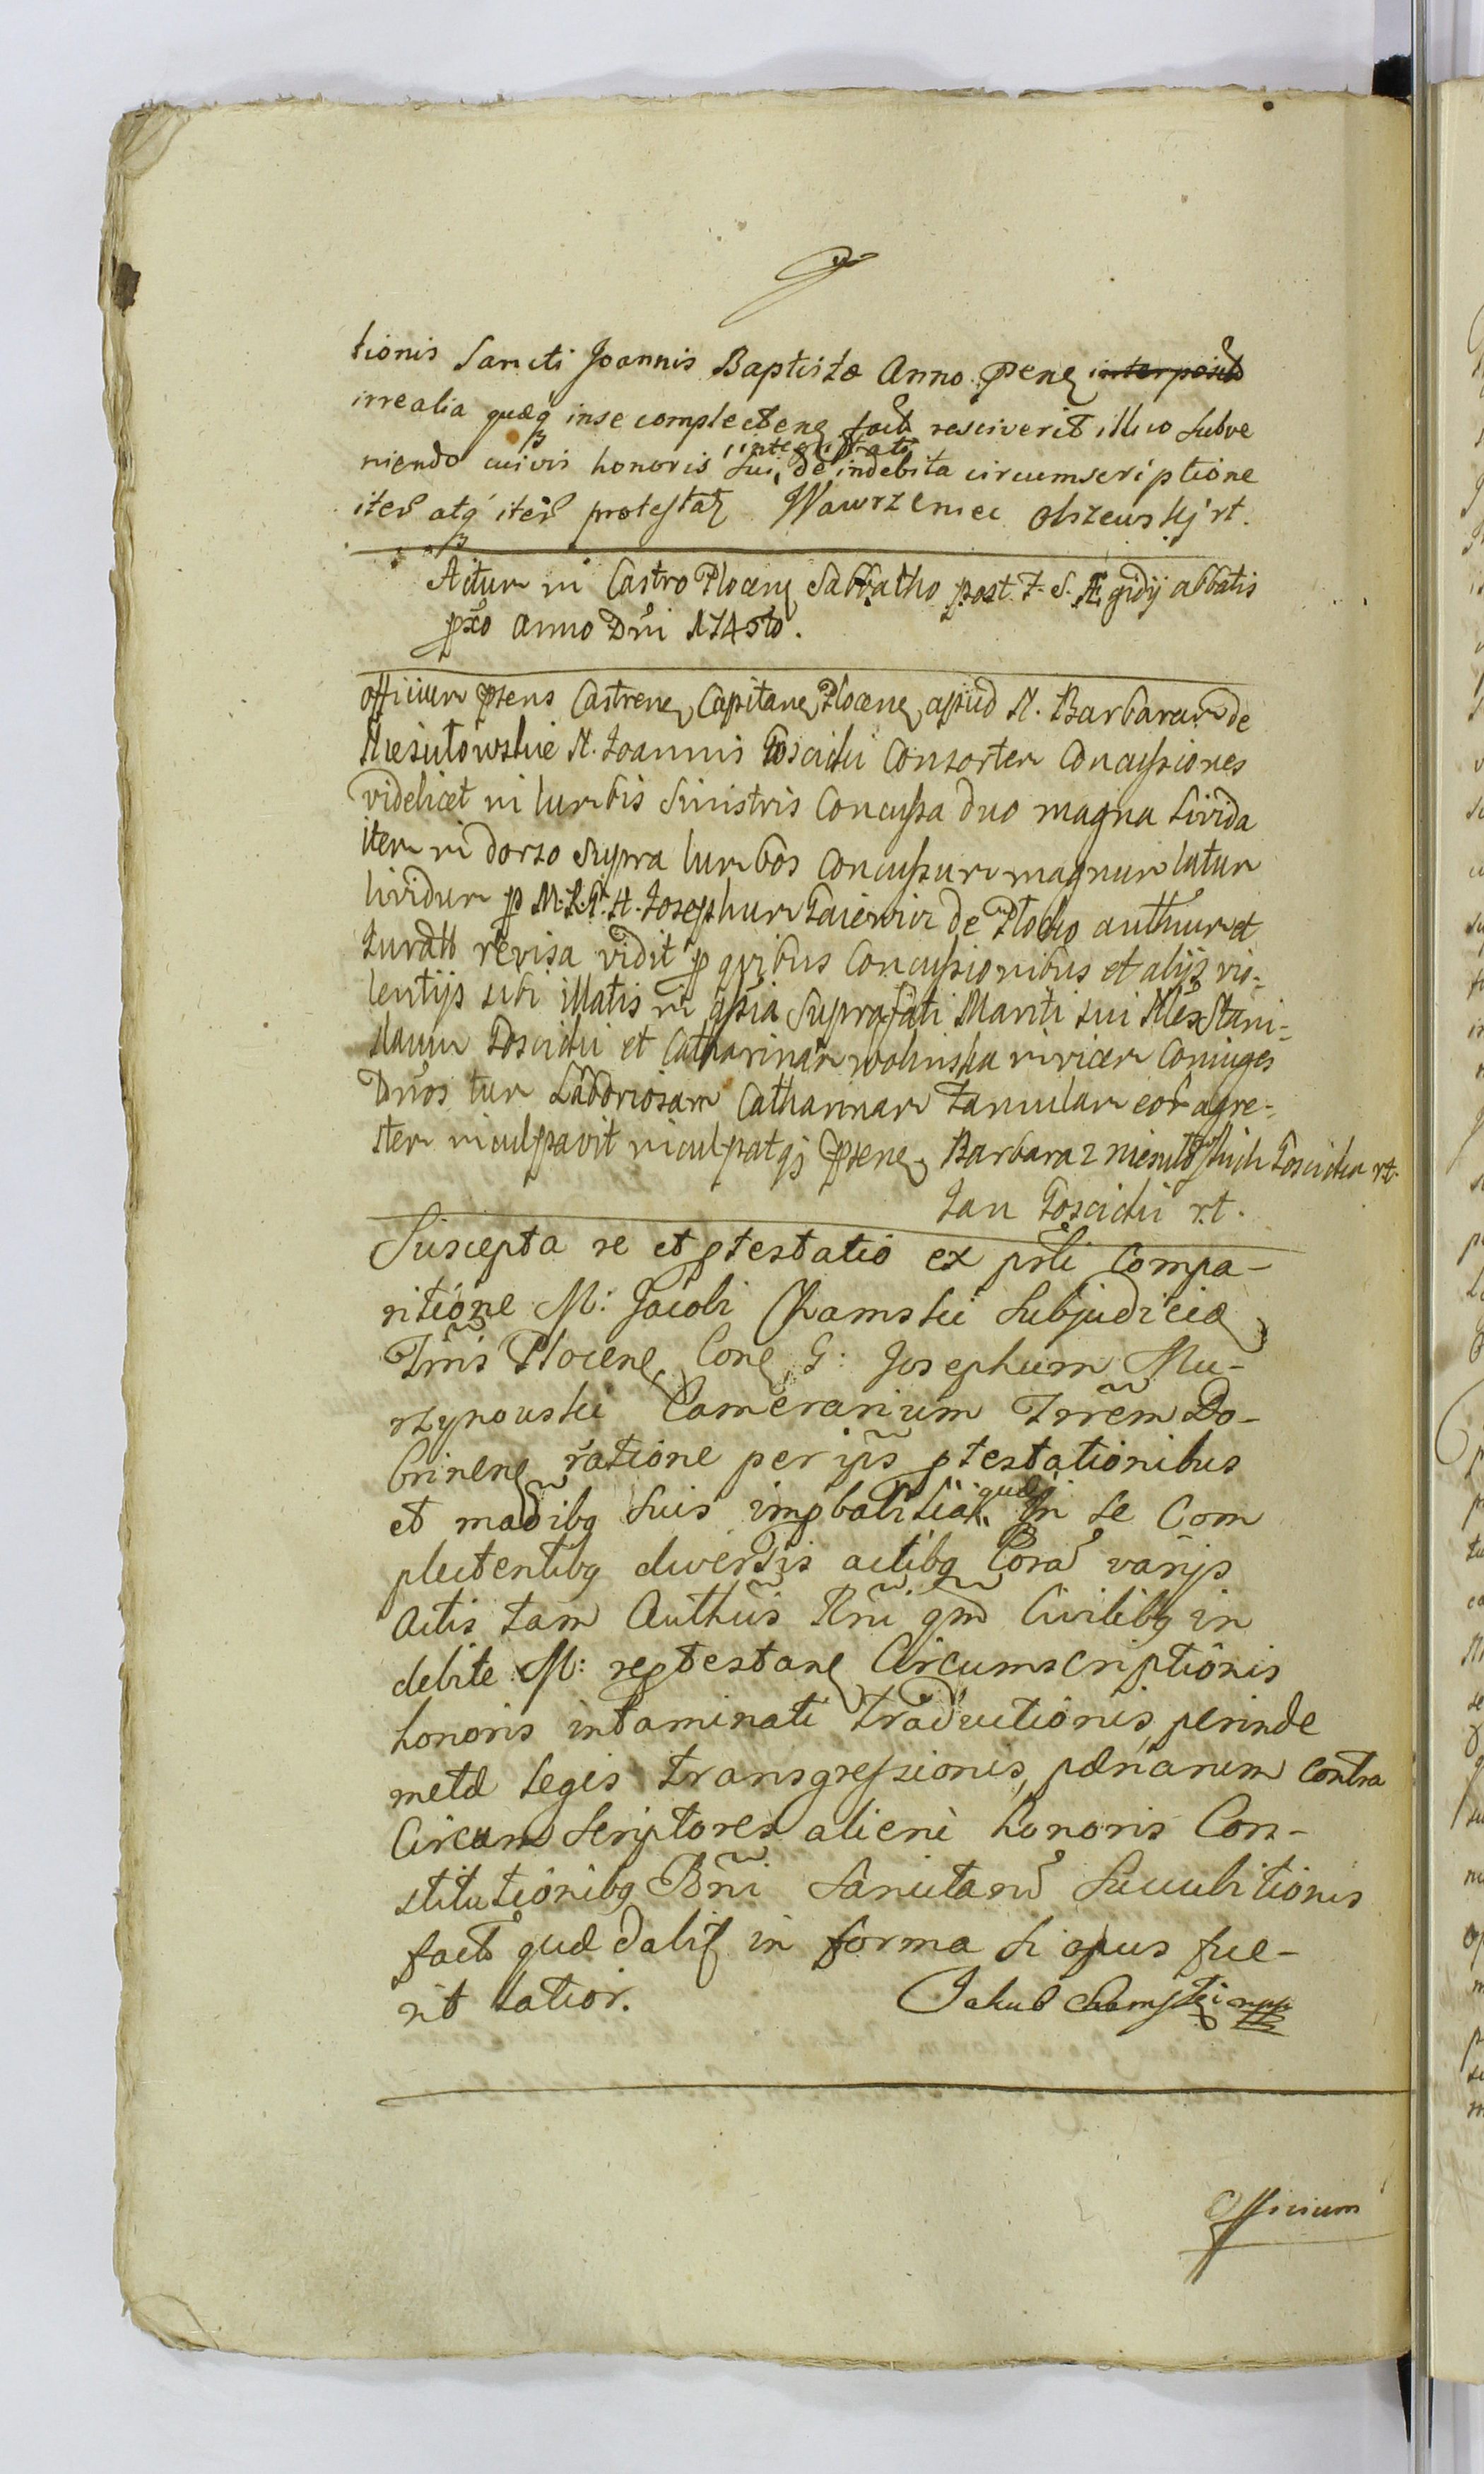 tionis Sancti Joannis Baptistæ Anno pṇtẹ interposita
irrealia quæq inse complecteñ fact resciverit illico subve
niendo cuivis honoris sui, integritati, de indebita circumscriptione
iter atq iter protestat Wawrzeniec olszewskj rt.
Actum in Castro Plocen Sabbatho post F. S. Ægidij abbatis
pxo anno Dni 1745to.
officium pñs Castren Capitan Plocen apud N. Barbaram de
Niesiutowskie N. Joannis Goscicki Consortem Concussiones
videlicet in lumbis sinistris Concussa duo magna livida
item in dorso supra lumbos Concussum magnum latum
lividum p M. R. G. N. Josephum de Plocko authum et
Juratt revisa vidit p quibus Concussionibus et alijs vio-
lentijs sibi illatis in pñia suprafati Mariti sui Nles Stani-
slaum Goscicki et Catharinam wolinska invicem Coniuges
Dnos tum Laboriosam Catharinam Famulam eor agre-
stem inculpavit inculpatq pñe Barbara z niesiutoskich Goscicka rt.
Jan Goscicki rt.
Suscepta re et ptestatio ex prli Compa-
ritione M: Jacobi Chamski Subjudicis
Trris Plocen Con G: Josephum Mu-
rzynouski Camerarium Trrem Do-
brinen ratione per ips ptestationibus
et madibq suis impbalitia quæq In se Com
plectentibq diversis actibq Cora varijs
actis tam Authis Rni qm Civilibq in
debite M: reptestane Circumscriptionis
honoris intaminati traductionis, perinde
metæ legis transgressionis, pænarum contra
Circum scriptores alieni honoris Con-
stitutionibq Bni sancitaru succubitionis
fact quæ dabit in forma si opus fue-
rit latior. Jakub Chamski mpp
Officium